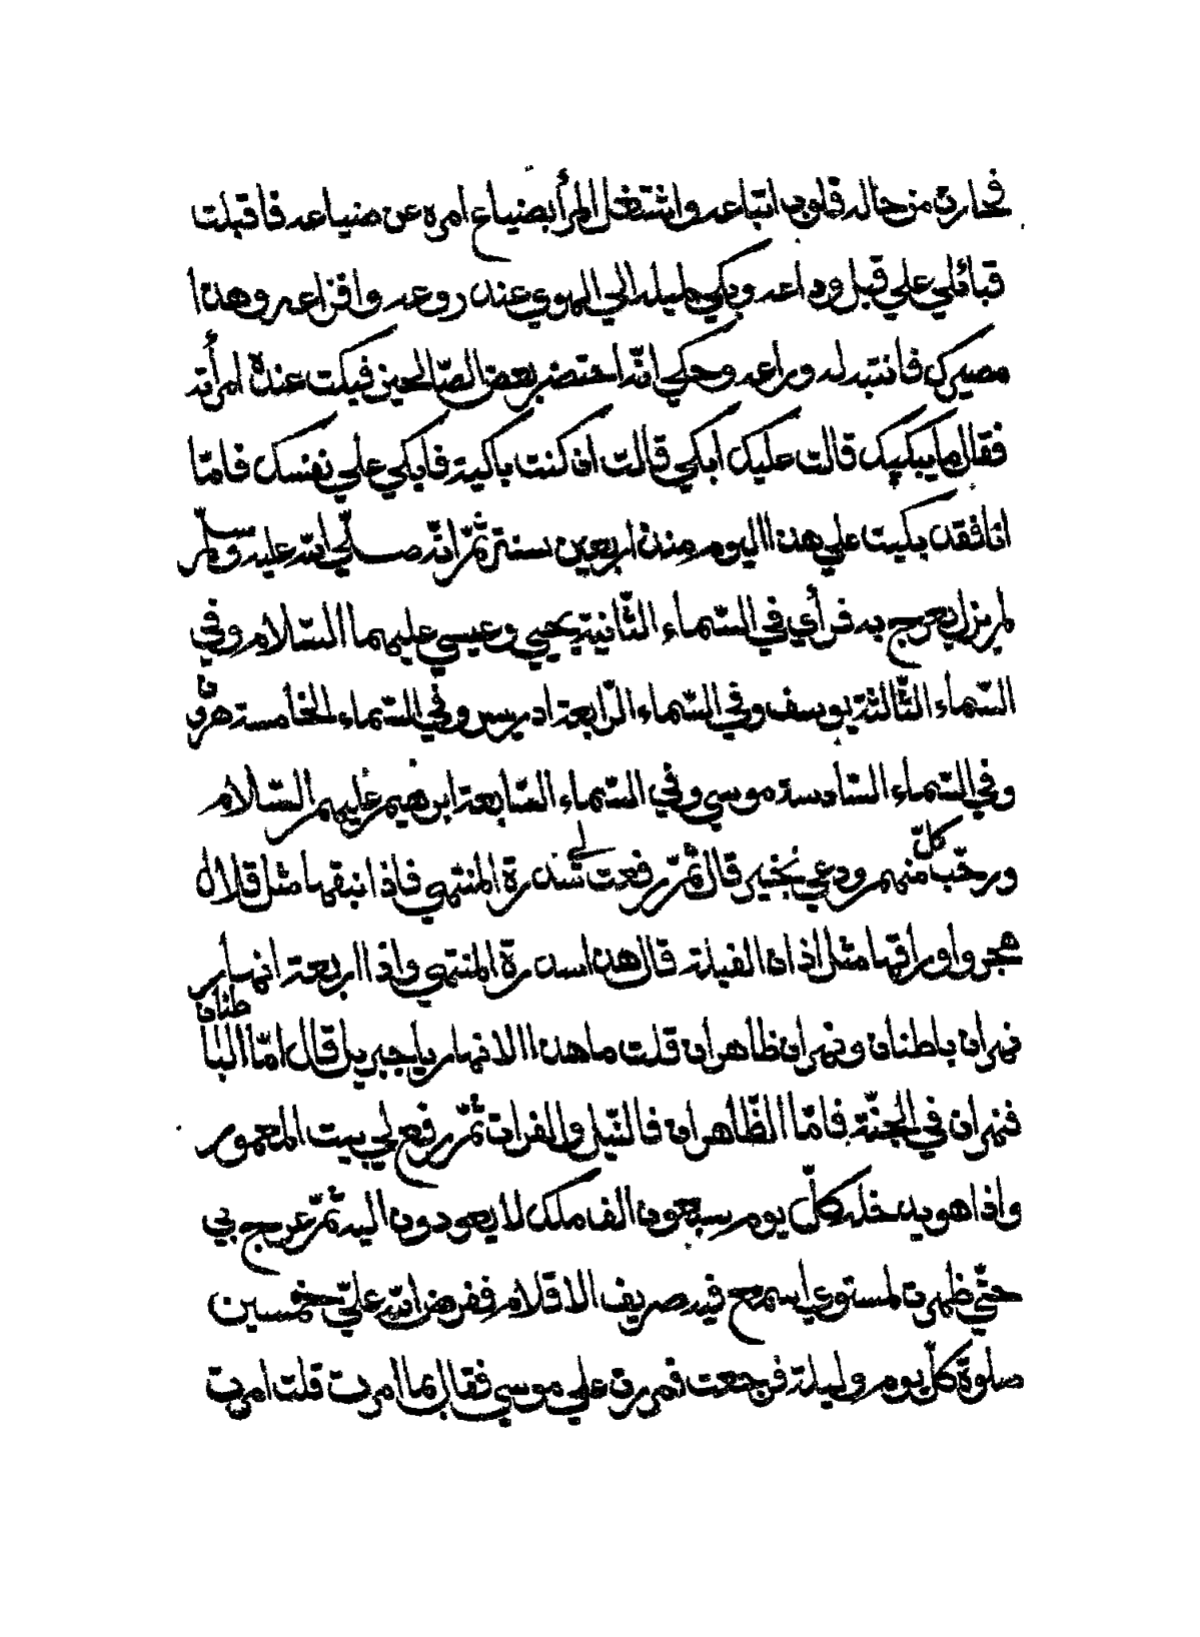 فحارت من حاله قلوب اتباعه واشتغل المرأ بضياع امره عن ضياعه فاقبلت
قبائلي علي قبل وداعه وبكي لميله الي الهوي عند روعه وافزاعه وهذا
مصيرك فانتبه له وراعه وحكي انّه احتضر بعض الصّالحين فبكت عنده امرأته
فقال ما يبكيك قالت عليك ابكي قالت ان كنت باكية فابكي علي نفسك فامّا
انا فقد بكيت علي هذا اليوم منذ اربعين سنة ثمّ انّه صلّي الله عليه وسلّم
لم يزل يعرج به فرأي في السّماء الثّانية يحيي وعيسي عليهما السّلام وفي
السّماء الثّالثة يوسف وفي السّماء الرّابعة ادريس وفي السّماء الخامسة هرون
وفي السّماء السّادسة موسي وفي السّماء السّابعة ابرهيم عليهم السّلام
ورحّب كلّ منهم ودعي بخير قال ثمّ رفعت لي سدرة المنتهي فاذا نبقها مثل قلال
هجر واوراقها مثل اذان الفيلة قال هذا سدرة المنتهي واذا اربعة انهار
نهران باطنان ونهران ظاهران قلت ما هذا الانهار يا جبريل قال امّا الباطنان
فنهران في الجنّة فامّا الظّاهران فالنّيل والفرات ثمّ رفع لي بيت المعمور
واذا هو يدخله كلّ يوم سبعون الف ملك لا يعودون اليه ثمّ عرج بي
حتّي ظهرت لمستوي اسمع فيه صريف الاقلام ففرض الله عليّ خمسين
صلوة كلّ يوم وليلة فرجعت فمررت علي موسي فقال بما امرت قلت امرت